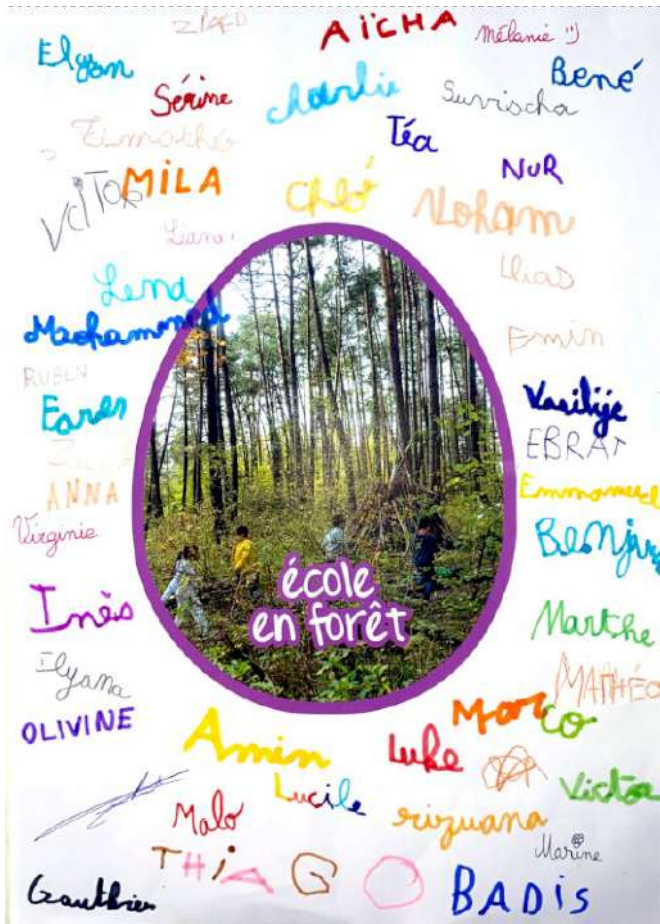 ZIAED
AÏCHA
Mélanie :)
Elyan
Bené
Sérine
Charlie
Suvischa
Timothé
Téa
NUR
VCITOR
MILA
Chloé
Noham
Liana
Ilias
Lena
Maohammed
Emin
RUBEN
Fares
Vasilije
EBRAT
ANNA
Emmanuel
Virginie
Benjamin
école
en forêt
Inès
Marthe
Ilyana
MATHÉO
OLIVINE
Marco
Amin
Luke
Victor
Lucile
Malo
rizuana
Marine
THiAGO
Gauthier
BADIS